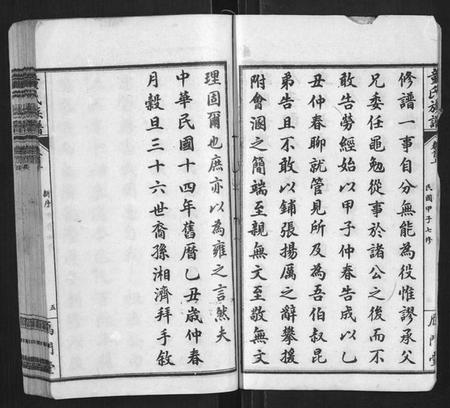 修譜一事自分無能為役惟謬承父
兄委任黽勉從事於諸公之後而不
敢告勞經始以甲子仲春告成以乙
丑仲春聊就管見所及為吾伯叔昆
弟告且不敢以鋪張揚厲之辭攀援
附會溷之簡端至親無文至敬無文
理固爾也庶亦以為雍之言然夫
中華民國十四年舊曆乙丑歲仲春
月穀旦三十六世裔孫湘濟拜手敘
氏族譜
民國甲子七修
門堂
新序
五
門堂